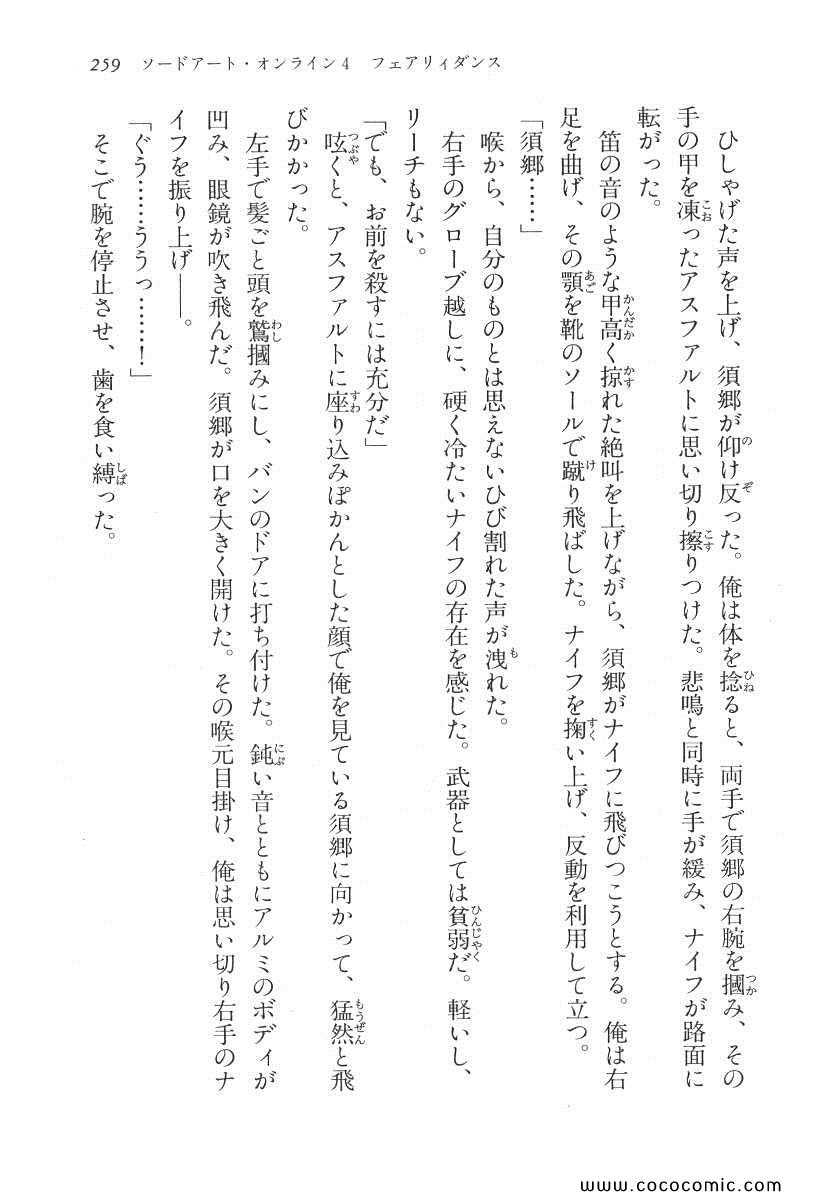 259 ソードアート・オンライン4 フェアリィダンス
　ひしゃげた声を上げ、須郷が仰け反った。俺は体を捻ると、両手で須郷の右腕を摑み、その
手の甲を凍ったアスファルトに思い切り擦りつけた。悲鳴と同時に手が緩み、ナイフが路面に
転がった。
　笛の音のような甲高く掠れた絶叫を上げながら、須郷がナイフに飛びつこうとする。俺は右
足を曲げ、その顎を靴のソールで蹴り飛ばした。ナイフを掬い上げ、反動を利用して立つ。
「須郷……」
　喉から、自分のものとは思えないひび割れた声が洩れた。
　右手のグローブ越しに、硬く冷たいナイフの存在を感じた。武器としては貧弱だ。軽いし、
リーチもない。
「でも、お前を殺すには充分だ」
　呟くと、アスファルトに座り込みぽかんとした顔で俺を見ている須郷に向かって、猛然と飛
びかかった。
　左手で髪ごと頭を鷲摑みにし、バンのドアに打ち付けた。鈍い音とともにアルミのボディが
凹み、眼鏡が吹き飛んだ。須郷が口を大きく開けた。その喉元目掛け、俺は思い切り右手のナ
イフを振り上げ――。
「ぐう……ううっ……！」
　そこで腕を停止させ、歯を食い縛った。
www.cococomic.com/